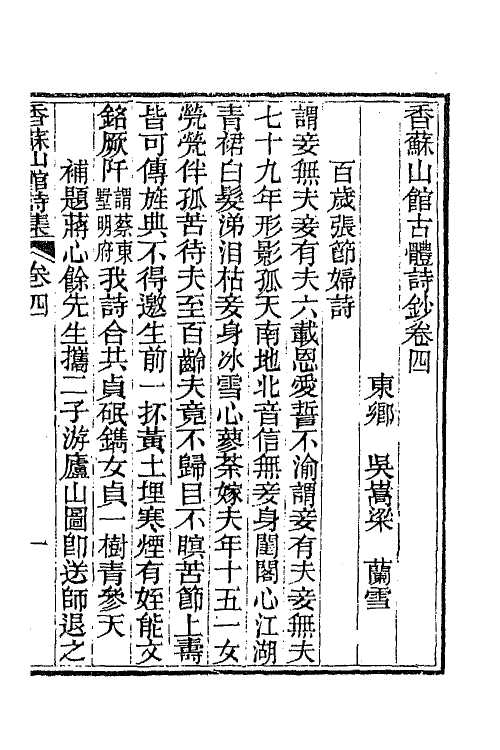 香蘇山館古體詩鈔卷四
東鄉 吳嵩梁 蘭雪
百歲張節婦詩
謂妾無夫妾有夫六載恩愛誓不渝謂妾有夫妾無夫
七十九年形影孤天南地北音信無妾身閨閣心江湖
青裙白髮涕泪枯妾身冰雪心蓼荼嫁夫年十五一女
煢煢伴孤苦待夫至百齡夫竟不歸目不瞑苦節上壽
皆可傳旌典不得邀生前一抔黃土埋寒煙有姪能文
銘厥阡謂蔡東墅明府我詩合共貞珉鐫女貞一樹青參天
補題蔣心餘先生攜二子游廬山圖卽送師退之
香蘇山館詩集 卷四 一